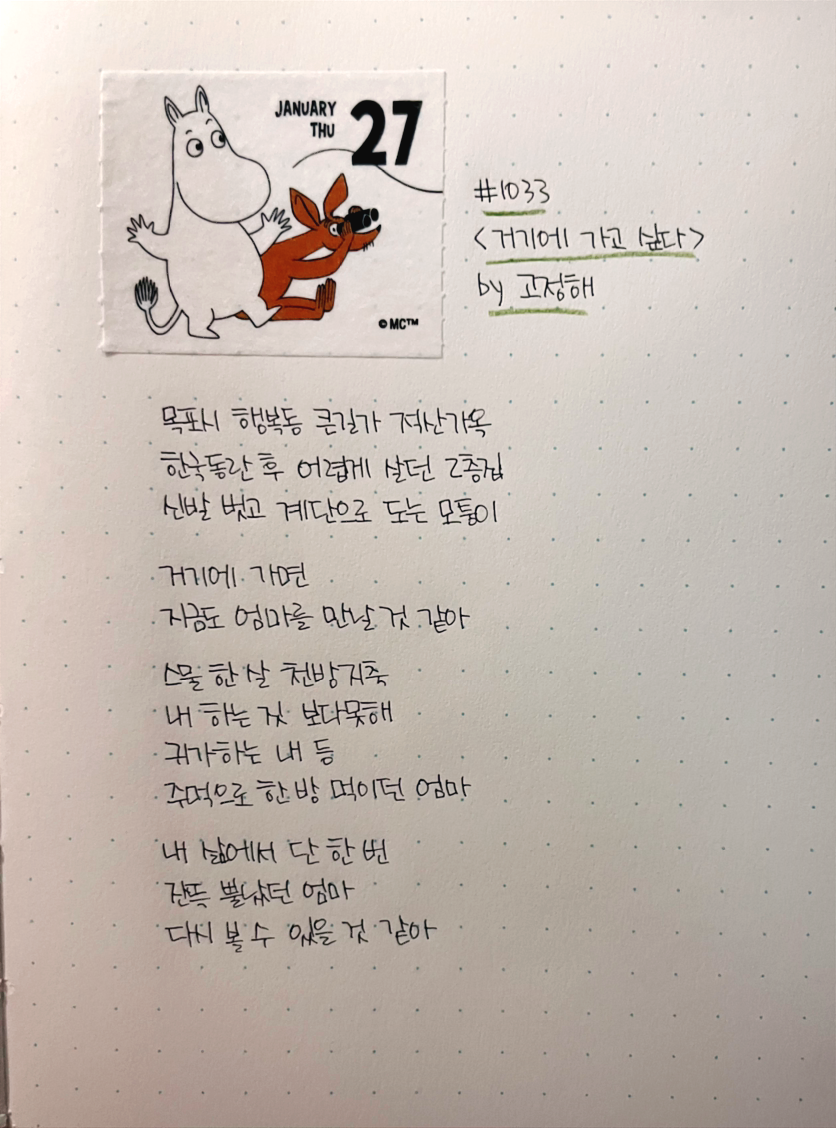 JANUARY
THU
27
© MC™
#1033
<거기에 가고 싶다>
by 고정해
목포시 행복동 큰길가 적산가옥
한국동란 후 어렵게 살던 2층집
신발 벗고 계단으로 도는 모퉁이
거기에 가면
지금도 엄마를 만날 것 같아
스물 한 살 천방지축
내 하는 것 보다못해
귀가하는 내 등
주먹으로 한 방 먹이던 엄마
내 삶에서 단 한 번
잔뜩 뿔났던 엄마
다시 볼 수 있을 것 같아